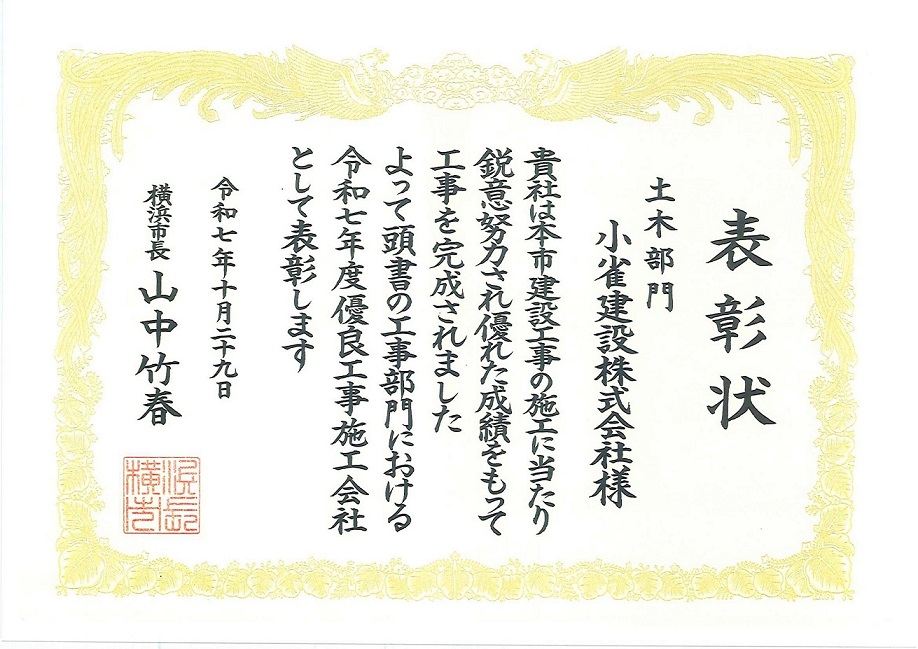 表彰状
土木部門
小雀建設株式会社様
貴社は本市建設工事の施工に当たり
鋭意努力され優れた成績をもって
工事を完成されました
よって頭書の工事部門における
令和七年度優良工事施工会社
として表彰します
令和七年十月二十九日
横浜市長 山中竹春
横浜市長